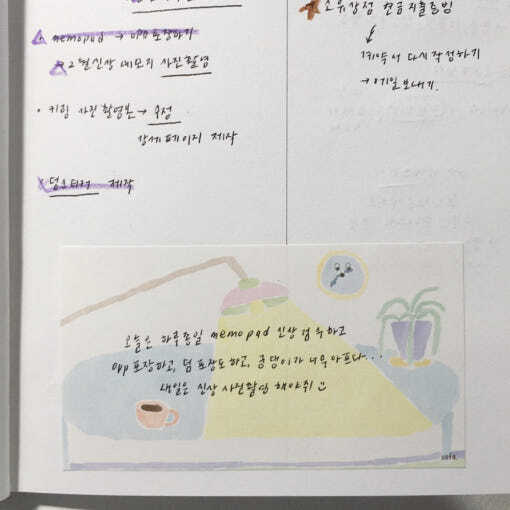 memopad → opp 포장하기
2월신상 메모지 사진촬영
• 키링 사진 촬영본 → 수정
상세페이지 제작
덤스티커 제작
소유상점 현금지출증빙
계약서 다시작성하기
→ 메일보내기.
오늘은 하루종일 memopad 신상 검수하고
opp 포장하고, 덤 포장도하고, 궁댕이가 너무아프다...
내일은 신상 사진촬영 해야쥐